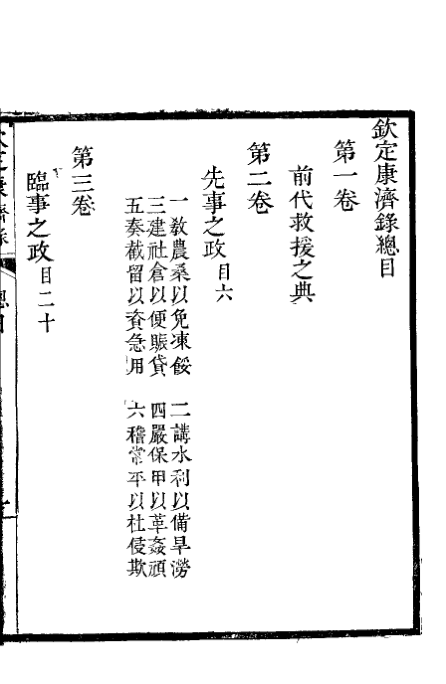 欽定康濟錄總目
第一卷
前代救援之典
第二卷
先事之政目六
一教農桑以免凍餒
二講水利以備旱澇
三建社倉以便賑貸
四嚴保甲以革姦頑
五奏截留以資急用
六稽常平以杜侵欺
第三卷
臨事之政目二十